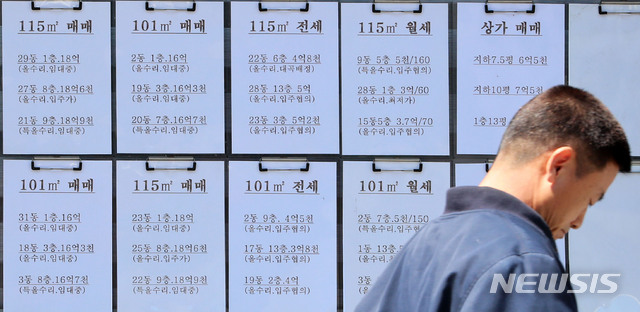 115㎡ 매매
29동 1층.18억
(올수리.임대중)
27동 8층.18억6천
(올수리.입주가)
21동 9층.18억9천
(특올수리.임대중)
101㎡ 매매
2동 1층.16억
(올수리.임대중)
19동 3층.16억3천
(올수리.임대중)
20동 7층.16억5천
(특올수리.임대중)
115㎡ 전세
22동 6층 4억8천
(올수리.대곡배정)
28동 13층 5억
(올수리.입주협의)
23동 3층 5억2천
(올수리.입주협의)
115㎡ 월세
9동 5층 5천/160
(특올수리.입주협의)
28동 1층 3억/60
(올수리.최저가)
15동5층 3.7억/70
(올수리.입주협의)
상가 매매
지하7.5평 6억5천
지하10평 7억5천
1층13평
101㎡ 매매
31동 1층.16억
(올수리.임대중)
18동 3층.16억3천
(올수리.임대중)
3동 8층.16억7천
(특올수리.임대중)
115㎡ 매매
23동 1층.18억
(올수리.임대중)
25동 8층.18억6천
(올수리.입주가)
22동 9층.18억9천
(특올수리.임대중)
101㎡ 전세
2동 9층. 4억5천
(올수리.입주협의)
17동 13층.3억8천
(올수리.입주협의)
19동 2층.4억
(올수리.입주협의)
101㎡ 월세
2동 7층.5천/150
(특올수리.입주협의)
1동 13층.
(올수리.
3동
(올수리.
NEWSIS